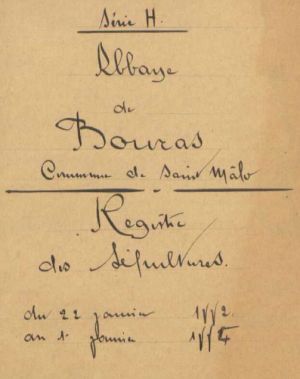 Série H.
Abbaye
de
Bouras
Commune de Saint Mâlo
Registre
des Sépultures.
du 22 janvier 1772.
au 1er janvier 177